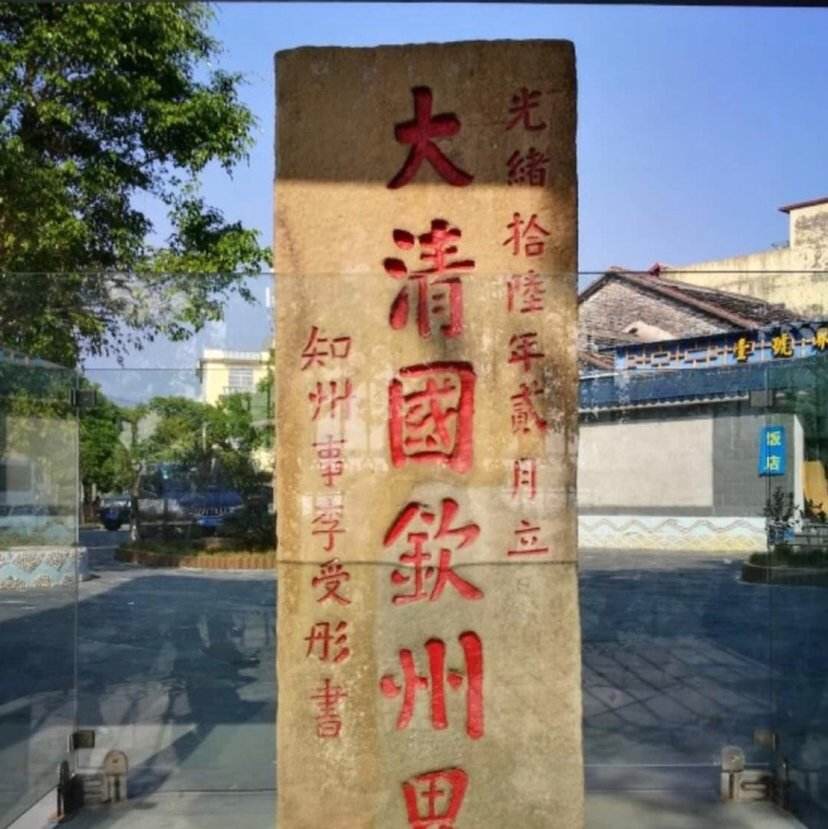 光緒拾陸年貳月立
大清國欽州界
知州事李受彤書
號臺
饭店